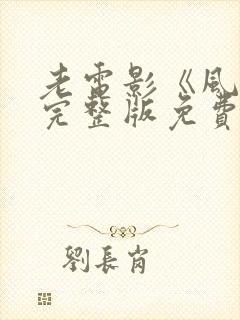 老電影《風
完整版免費
劉長肖